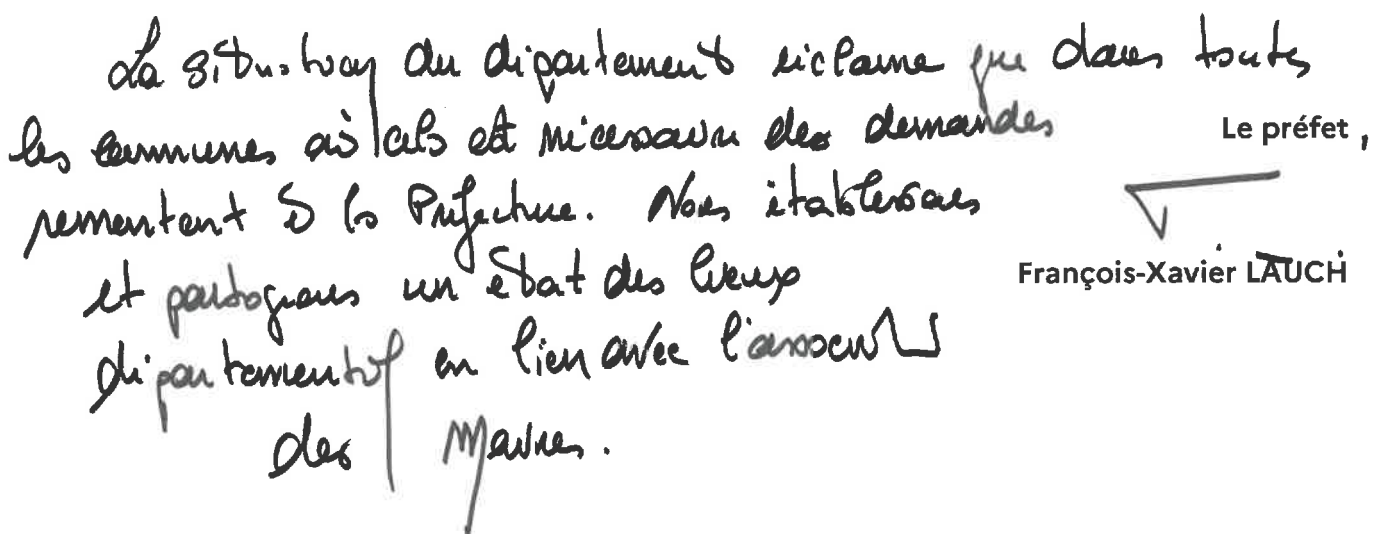 La situation du département réclame que dans toutes
les communes où cela est nécessaire des demandes
remontent à la Préfecture. Nous établissons
et partageons un état des lieux
départemental en lien avec l'associat°
des Maires.
Le préfet,
François-Xavier LAUCH